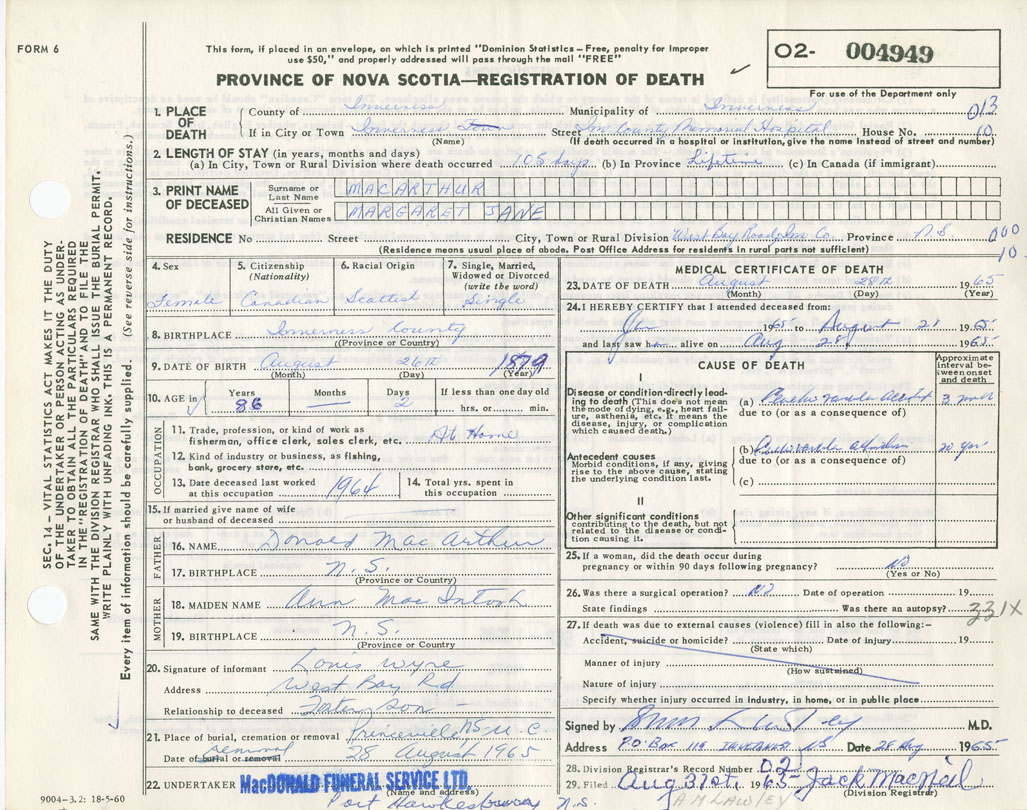 FORM 6
This form, if placed in an envelope, on which is printed "Dominion Statistics—Free, penalty for improper
use $50," and properly addressed will pass through the mail "FREE"
02- 004949
For use of the Department only
PROVINCE OF NOVA SCOTIA—REGISTRATION OF DEATH
1. PLACE OF DEATH
County of Inverness Municipality of Inverness 013
If in City or Town Inverness Town Street Inv County Memorial Hospital House No. 10
(Name) (If death occurred in a hospital or institution, give the name instead of street and number)
2. LENGTH OF STAY (in years, months and days)
(a) In City, Town or Rural Division where death occurred 105 days (b) In Province Lifetime (c) In Canada (if immigrant)
3. PRINT NAME OF DECEASED
Surname or Last Name MACARTHUR
All Given or Christian Names MARGARET JANE
RESIDENCE No Street City, Town or Rural Division West Bay Road, Inv Co. Province N.S. 000
(Residence means usual place of abode. Post Office Address for residents in rural parts not sufficient) 10
4. Sex Female
5. Citizenship (Nationality) Canadian
6. Racial Origin Scottish
7. Single, Married, Widowed or Divorced (write the word) Single
8. BIRTHPLACE Inverness County
(Province or County)
9. DATE OF BIRTH August 26th 1879
(Month) (Day) (Year)
10. AGE in Years 86 Months — Days 2 If less than one day old hrs. or min.
OCCUPATION
11. Trade, profession, or kind of work as
fisherman, office clerk, sales clerk, etc. At Home
12. Kind of industry or business, as fishing,
bank, grocery store, etc.
13. Date deceased last worked
at this occupation 1964
14. Total yrs. spent in
this occupation
15. If married give name of wife
or husband of deceased
FATHER
16. NAME Donald MacArthur
17. BIRTHPLACE N.S.
(Province or Country)
MOTHER
18. MAIDEN NAME Ann MacIntosh
19. BIRTHPLACE N.S.
(Province or Country
20. Signature of informant Louis Wyre
Address West Bay Rd
Relationship to deceased Foster son
21. Place of burial, cremation or removal Princeville NS U.C.
removal
Date of burial or removal 28 August 1965
22. UNDERTAKER MacDONALD FUNERAL SERVICE LTD.
(Name and address)
Port Hawkesbury N.S.
9004-3.2: 18-5-60
MEDICAL CERTIFICATE OF DEATH
23. DATE OF DEATH August 28th 1965
(Month) (Day) (Year)
24. I HEREBY CERTIFY that I attended deceased from:
Jan 1965 to August 28 1965
and last saw h alive on Aug 28 1965
CAUSE OF DEATH
Approximate interval between onset and death
I
Disease or condition directly leading to death (This does not mean the mode of dying, e.g., heart failure, asthenia, etc. It means the disease, injury, or complication which caused death.)
(a)
due to (or as a consequence of)
Antecedent causes
Morbid conditions, if any, giving rise to the above cause, stating the underlying condition last.
(b) 20 yrs
due to (or as a consequence of)
(c)
II
Other significant conditions
contributing to the death, but not related to the disease or condition causing it.
25. If a woman, did the death occur during
pregnancy or within 90 days following pregnancy? No
(Yes or No)
26. Was there a surgical operation? No Date of operation 19
State findings Was there an autopsy? 331X
27. If death was due to external causes (violence) fill in also the following:-
Accident, suicide or homicide? Date of injury 19
(State which)
Manner of injury
(How sustained)
Nature of injury
Specify whether injury occurred in industry, in home, or in public place
Signed by M.D.
Address P.O. Box 119 NS Date 28 Aug 1965
28. Division Registrar's Record Number 021
29. Filed Aug 31st, 1965 Jack MacNeil
(Division Registrar)
A M LAWLEY
SEC. 14 – VITAL STATISTICS ACT MAKES IT THE DUTY
OF THE UNDERTAKER OR PERSON ACTING AS UNDER-
TAKER TO OBTAIN ALL THE PARTICULARS REQUIRED
IN THE "REGISTRATION OF DEATH" AND TO FILE THE
SAME WITH THE DIVISION REGISTRAR WHO SHALL ISSUE THE BURIAL PERMIT.
WRITE PLAINLY WITH UNFADING INK. THIS IS A PERMANENT RECORD.
Every item of information should be carefully supplied. (See reverse side for instructions.)